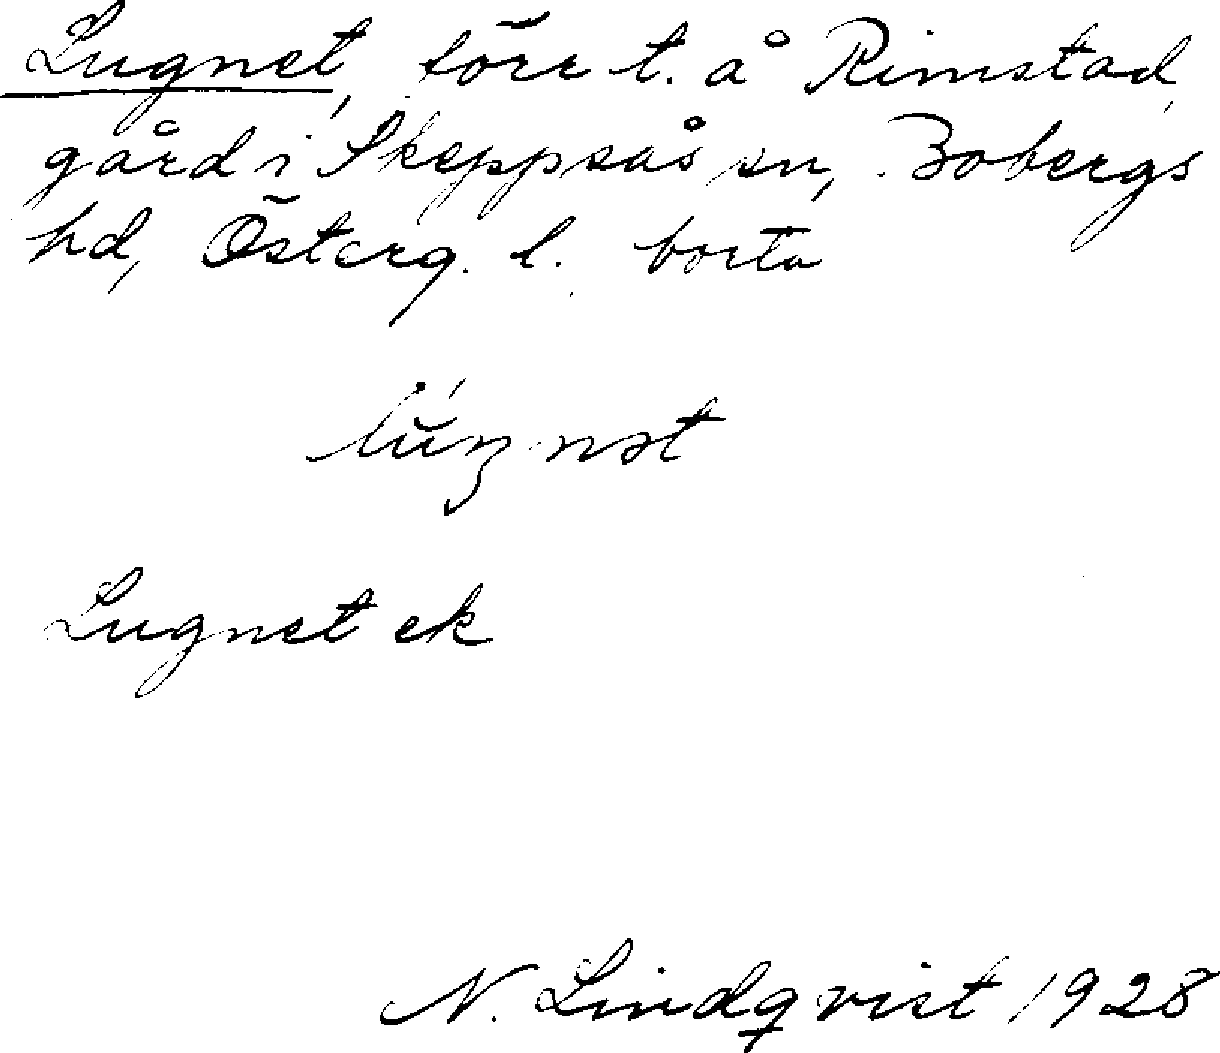 Lugnet, förr t. å Rimstad,
gård i Skeppsås sn, Bobergs
hd, Österg. l. borta
Lugnet ek
N. Lindqvist 1928